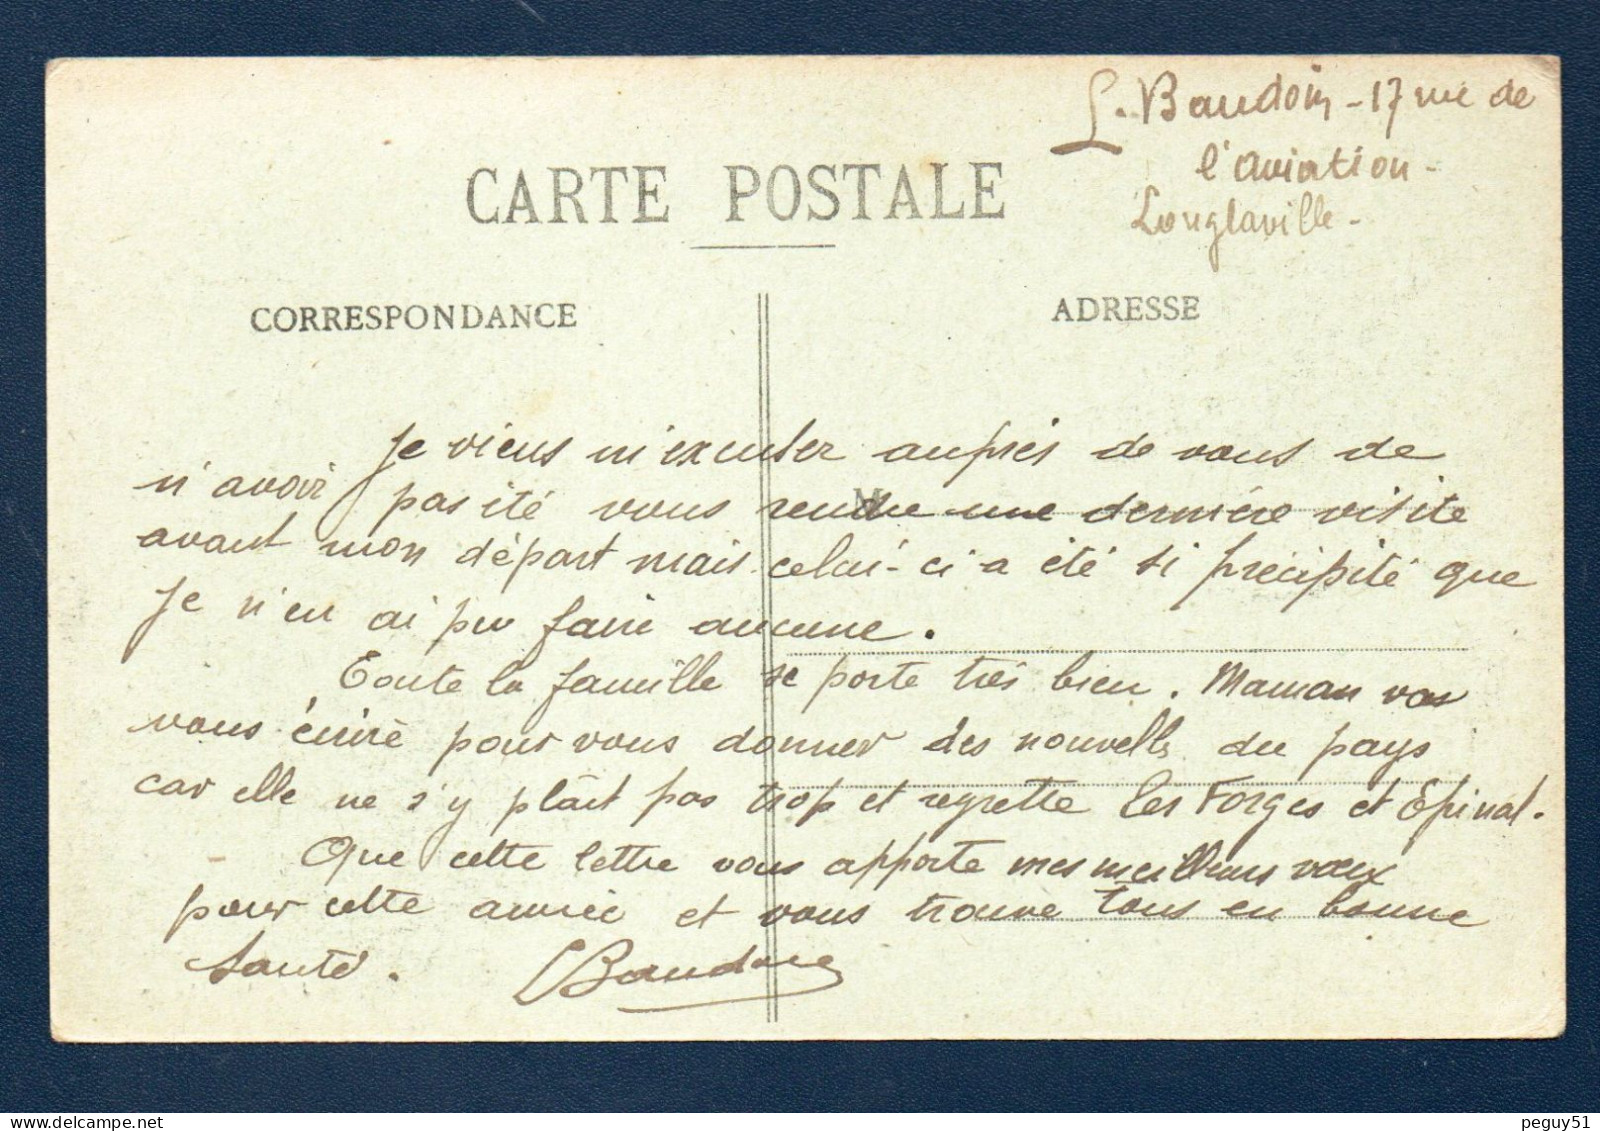 L. Baudoin - 17 rue de
l'aviation -
Longlaville -
CARTE POSTALE
CORRESPONDANCE
ADRESSE
M
Je viens m'excuser auprès de vous de
n'avoir pas été vous rendre une dernière visite
avant mon départ mais celui-ci a été si précipité que
je n'en ai pu faire aucune.
Toute la famille se porte très bien. Maman va
vous écrire pour vous donner des nouvelles du pays
car elle ne s'y plâit pas trop et regrette les Forges et Epinal.
Que cette lettre vous apporte mes meilleurs vœux
pour cette année et vous trouve tous en bonne
santé. Baudoin
peguy51